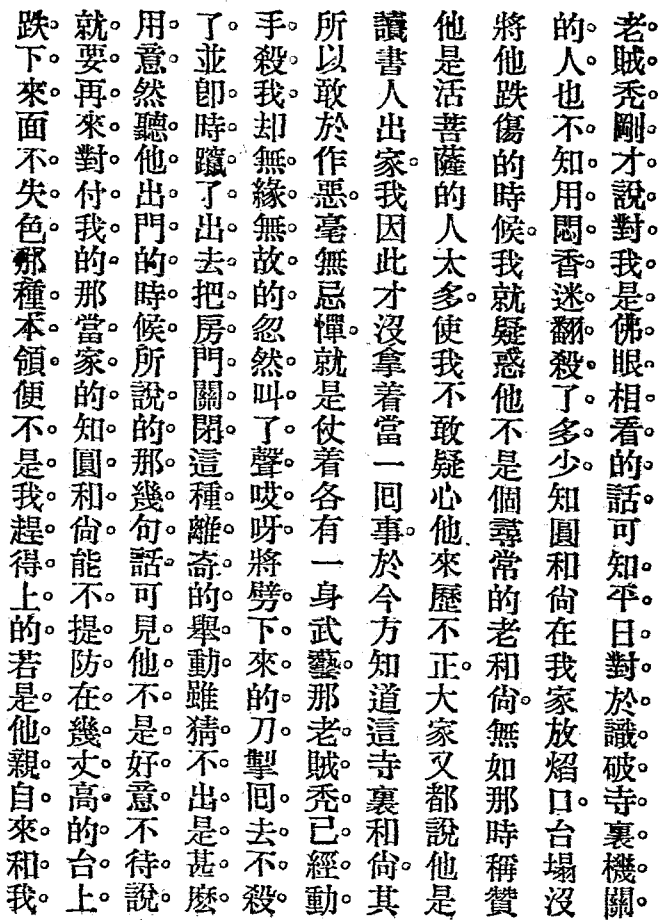 老賊禿剛才說對我是佛眼相看的話可知平日對於識破寺裏機關
的人也不知用悶香迷翻殺了多少。知圓和尙在我家放焰口。台塌沒
將他跌傷的時候。我就疑惑他不是個尋常的老和尙。無如那時稱贊
他是活菩薩的人太多。使我不敢疑心他來歷不正。大家又都說他是
讀書人出家。我因此才沒拿着當一回事。於今方知道這寺裏和尙。其
所以敢於作惡。毫無忌憚。就是仗着各有一身武藝。那老賊禿已經動
手殺我却無緣無故的忽然叫了聲哎呀將劈下來的刀掣回去不殺
了並卽時躥了出去把房門關閉這種離奇的舉動雖猜不出是甚麽
用意然聽他出門的時候所說的那幾句話可見他不是好意不待說
就要再來對付我的那當家的知圓和尙能不提防在幾丈高的台上
跌下來面不失色那種本領便不是我趕得上的若是他親自來和我